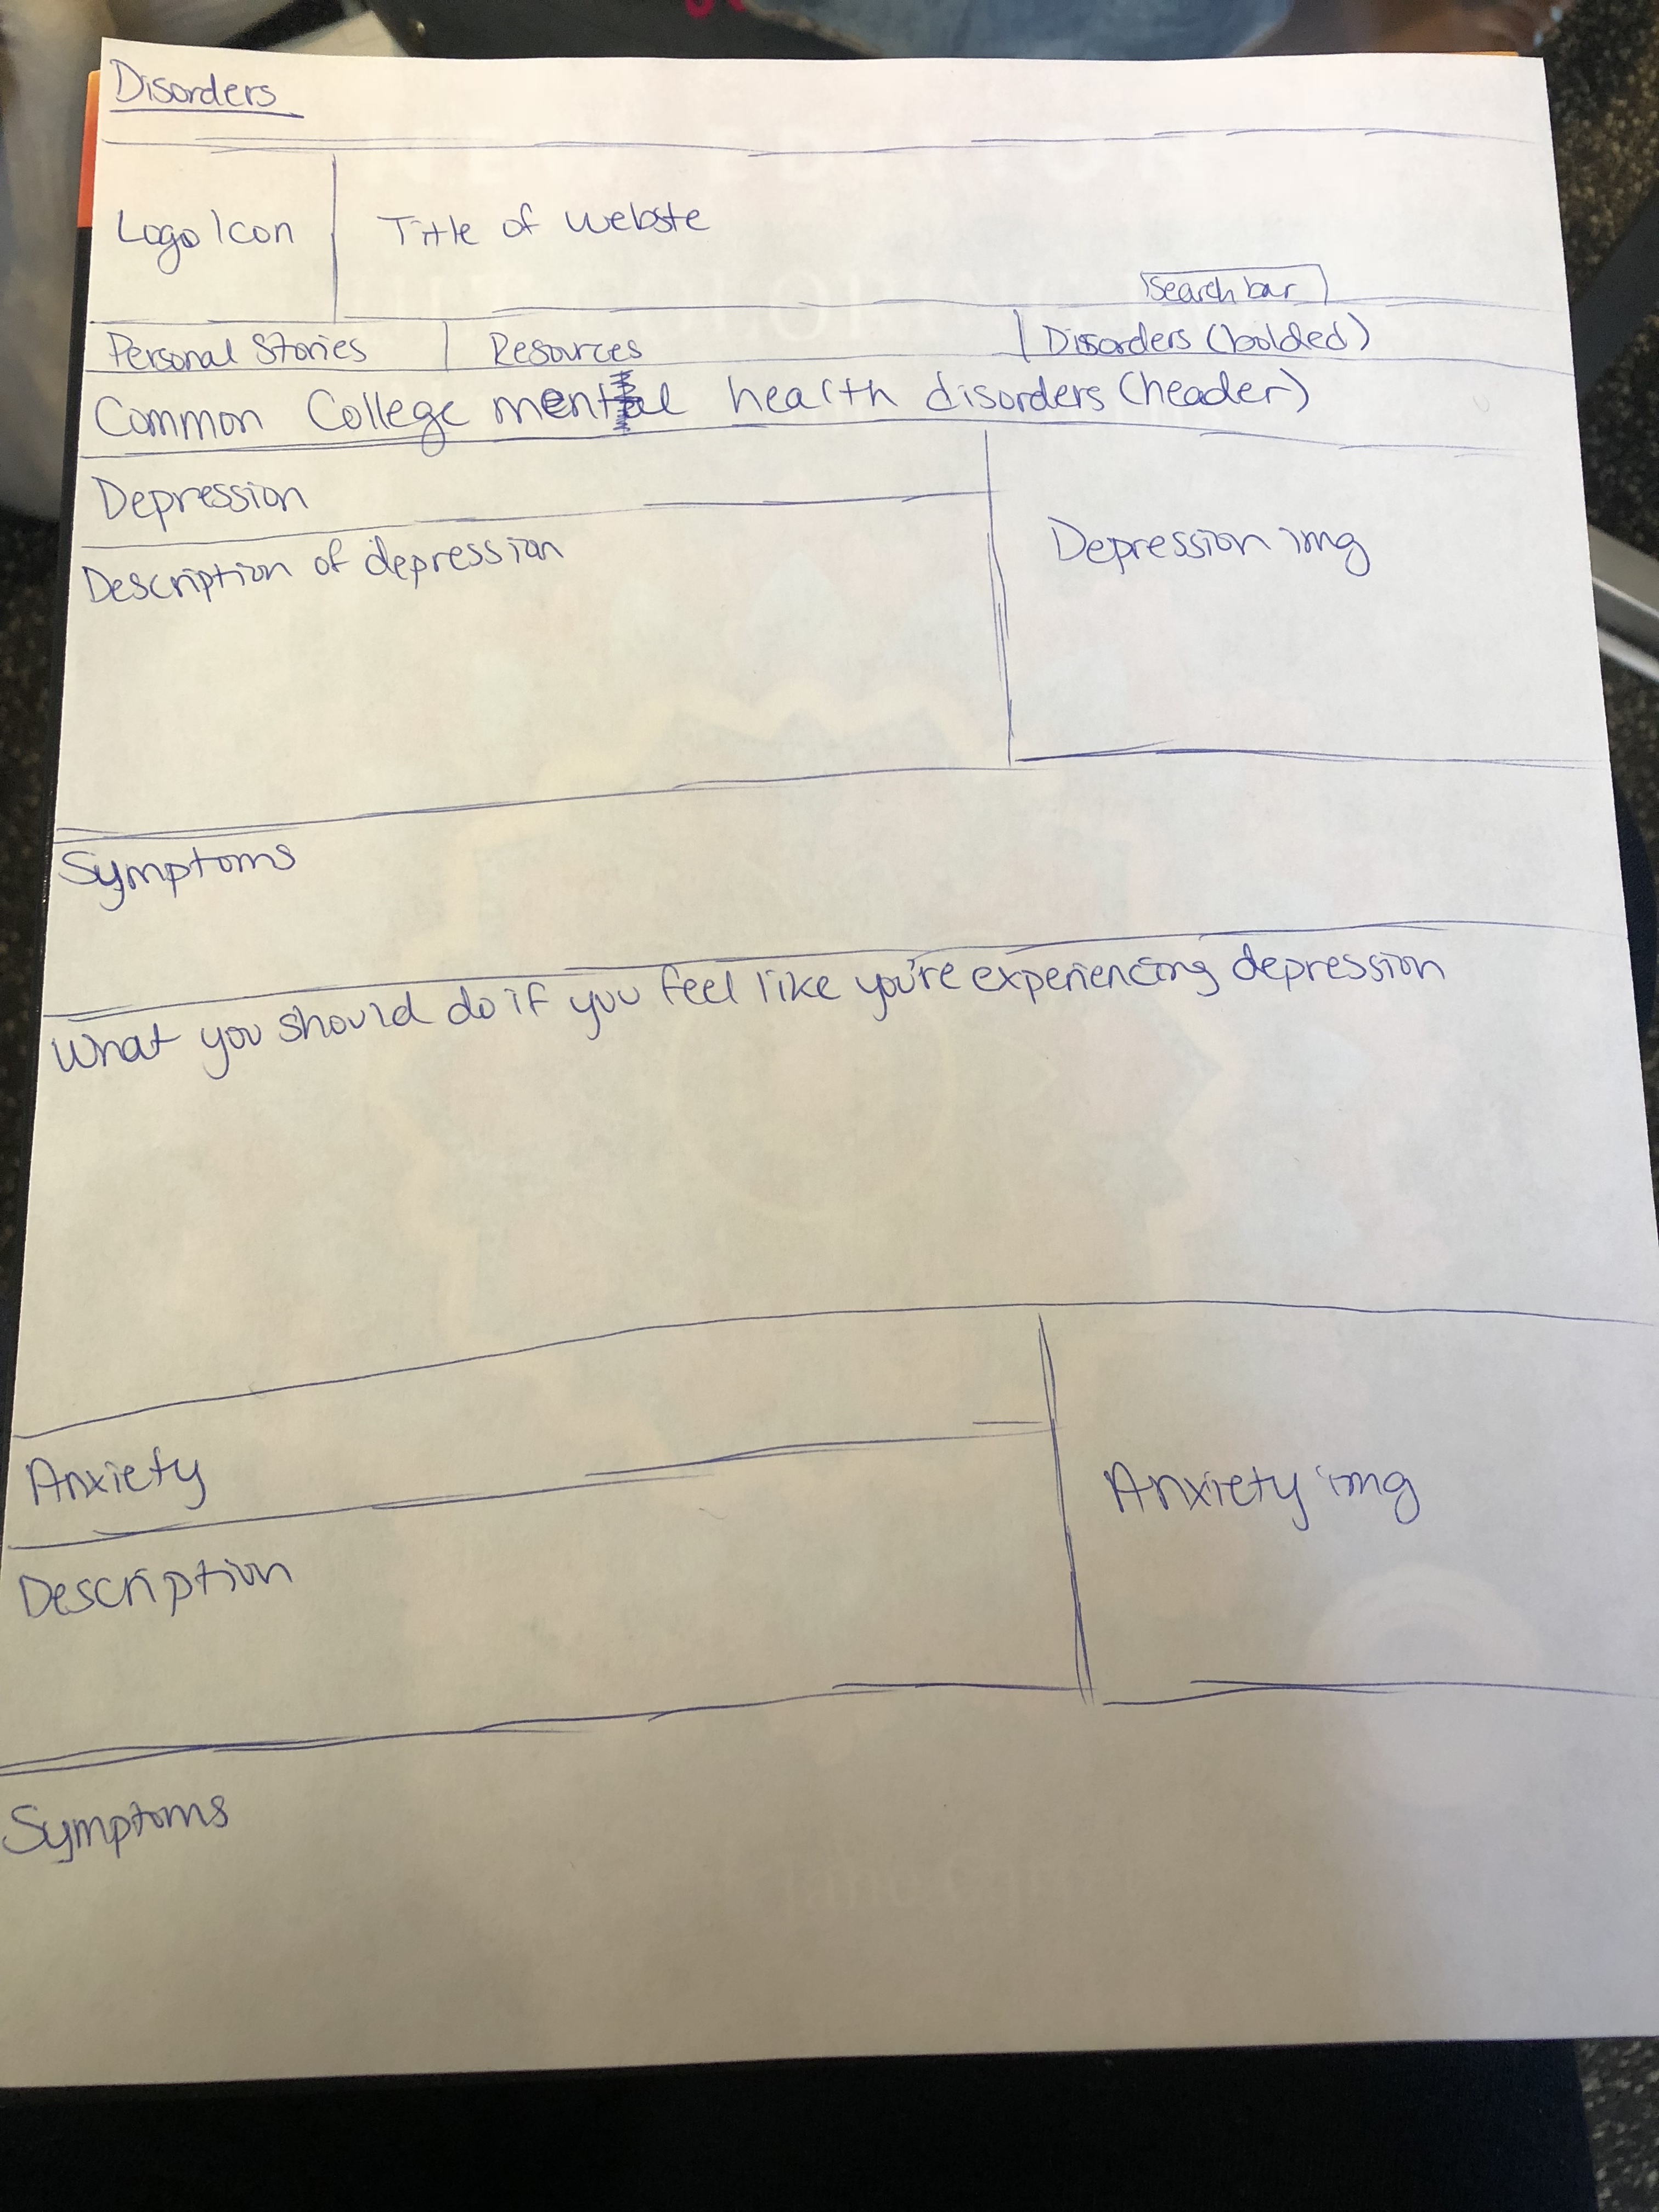 Disorders
Logo Icon
Title of webste
Search bar
Personal Stories
Resources
Disorders (bolded)
Common College mental health disorders (header)
Depression
Depression img
Description of depression
Symptoms
What you should do if you feel like you're experiencing depression
Anxiety
Anxiety img
Description
Symptoms